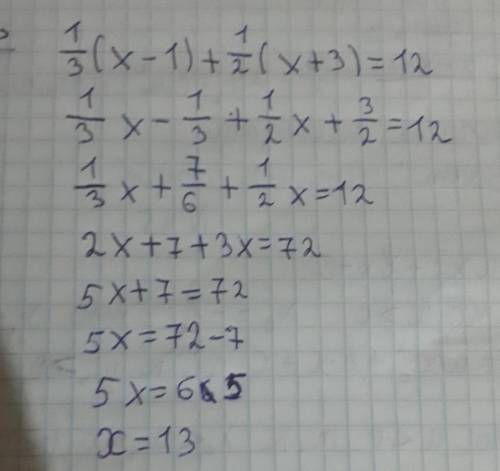 1/3(x-1)+1/2(x+3)=12
1/3x-1/3+1/2x+3/2=12
1/3x+7/6+1/2x=12
2x+7+3x=72
5x+7=72
5x=72-7
5x=65
x=13